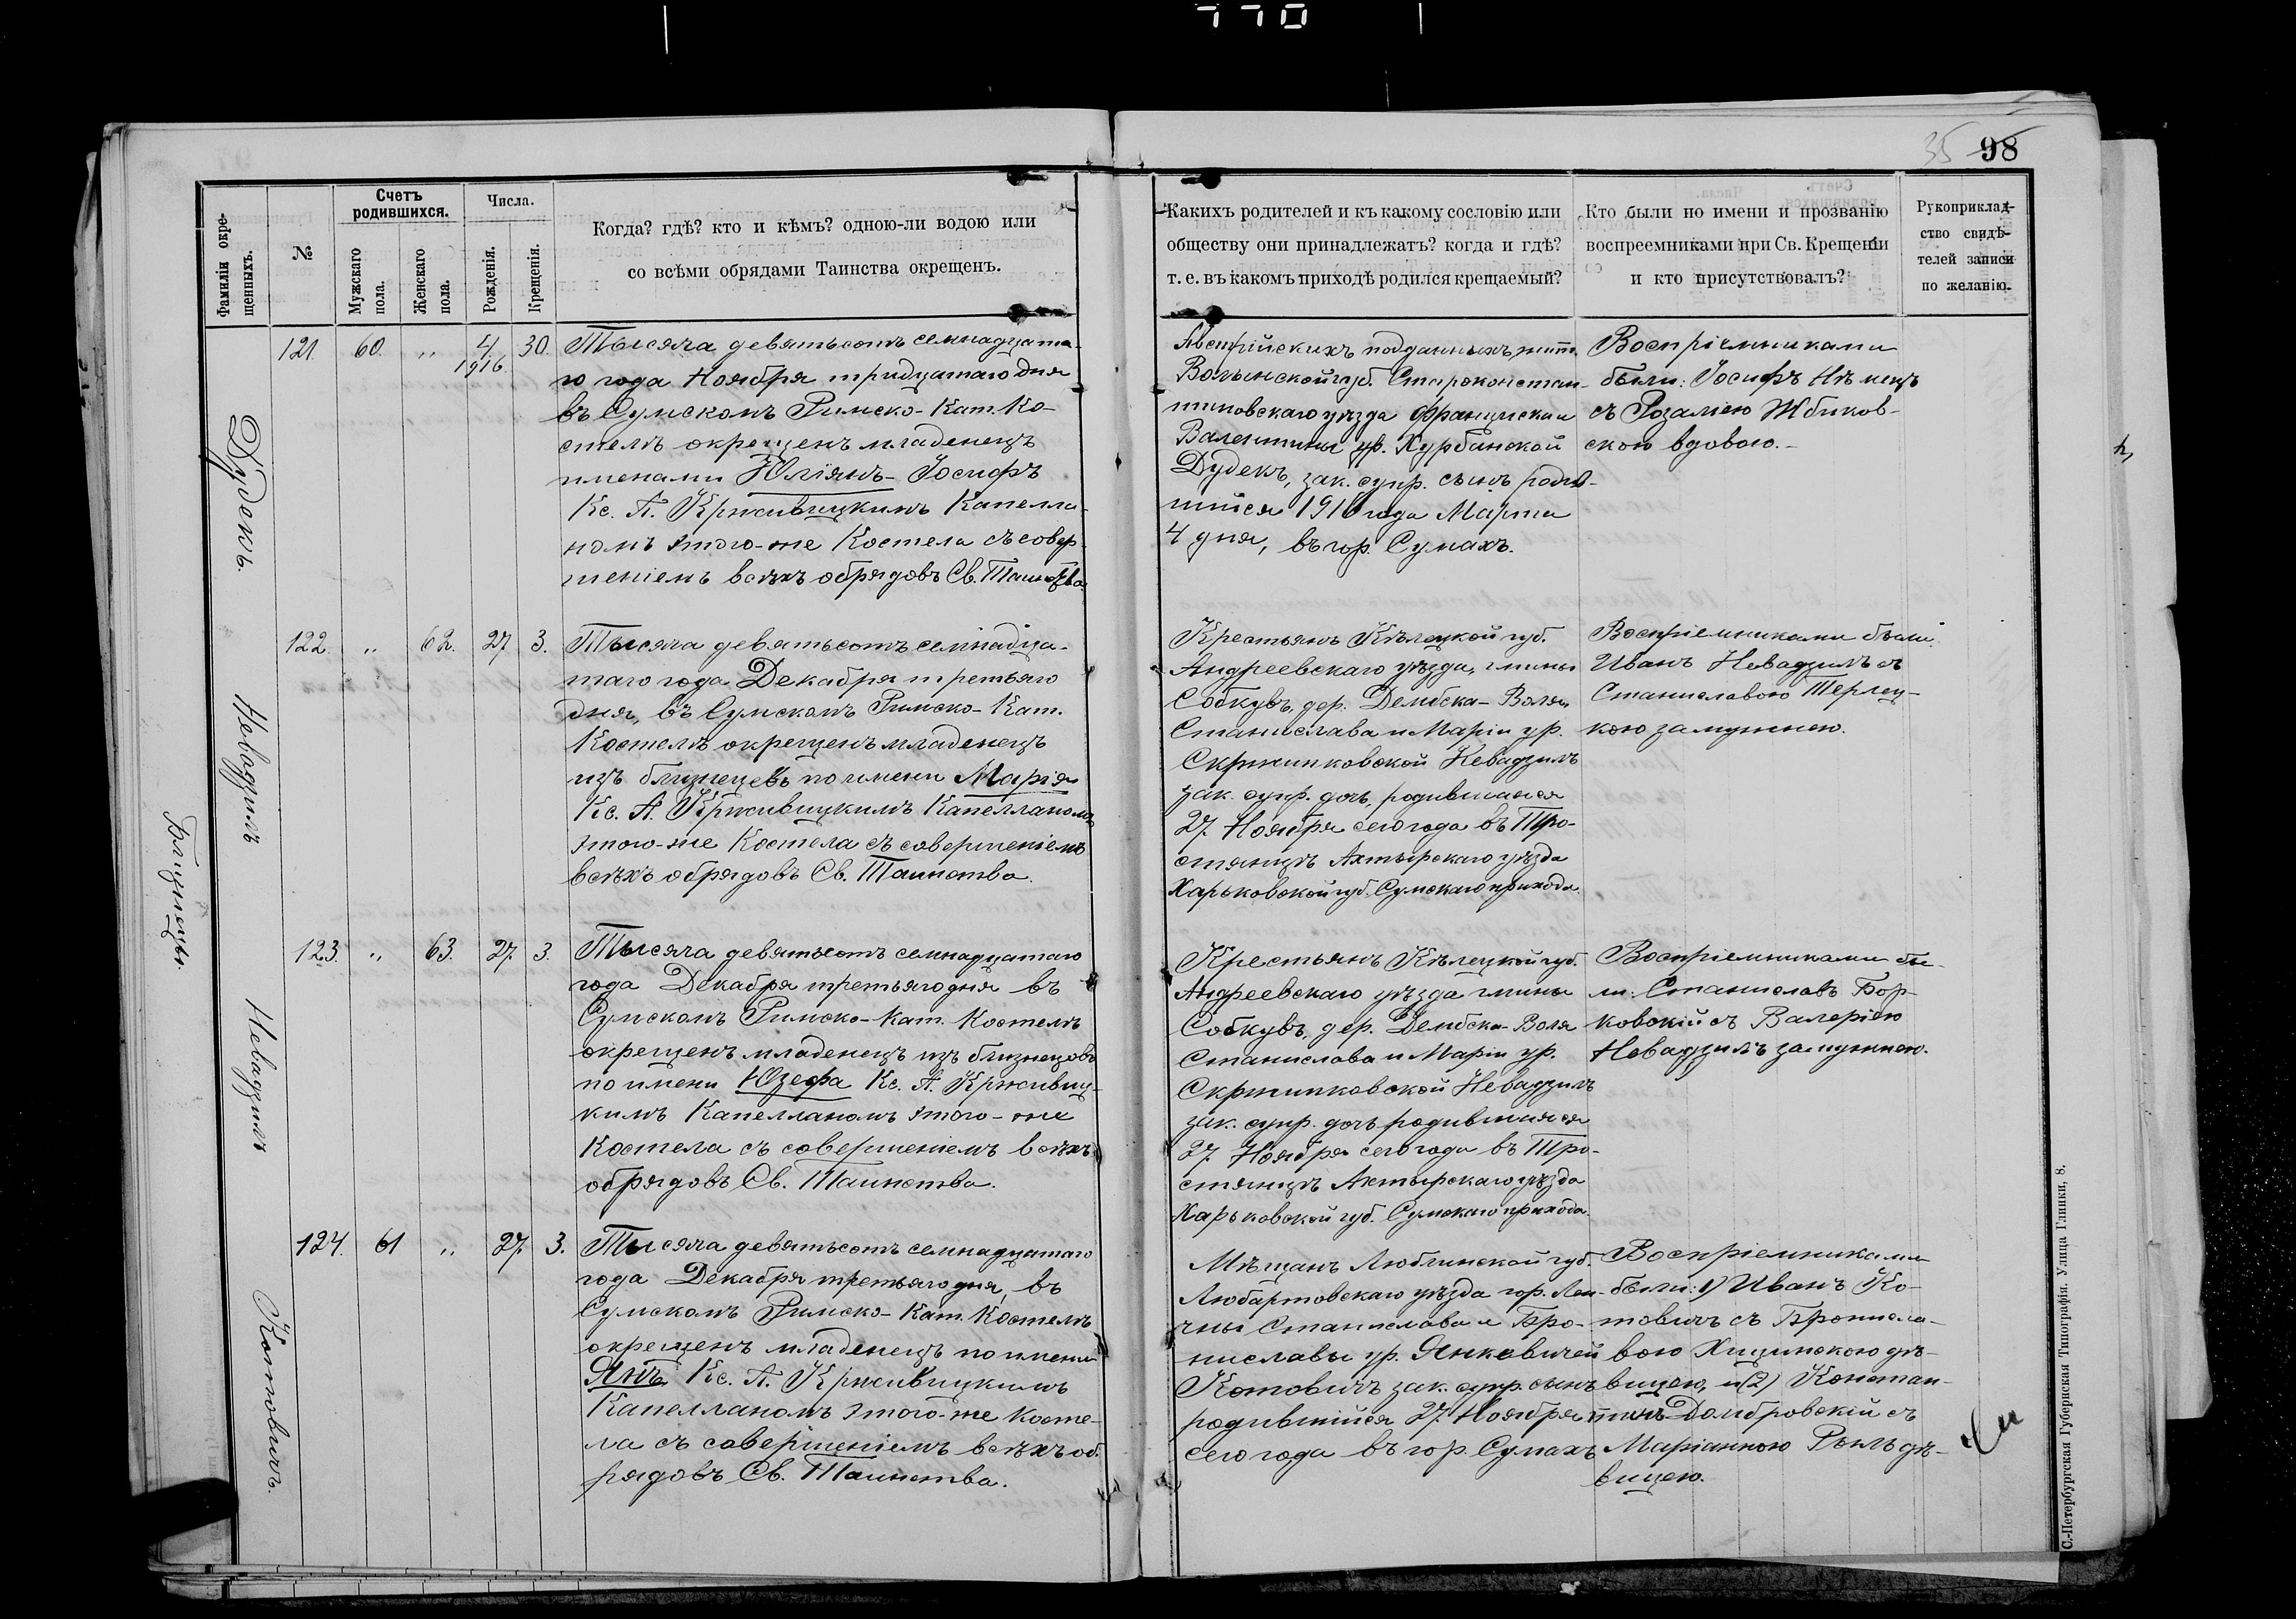 770
35 98
Фамиліи окре-
щенныхъ.
№
Счетъ
родившихся.
Мужскаго
пола.
Женскаго
пола.
Числа.
Рожденія.
Крещенія.
Когда? гдѣ? кто и кѣмъ? одною-ли водою или
со всѣми обрядами Таинства окрещенъ.
Какихъ родителей и къ какому сословію или
обществу они принадлежатъ? когда и гдѣ?
т. е. въ какомъ приходѣ родился крещаемый?
Кто были по имени и прозванію
воспреемниками при Св. Крещеніи
и кто присутствовалъ?
Рукоприклад-
ство свидѣ-
телей записи
по желанію.
Дудекъ.
121. 60. " 4 30.
1916.
Тысяча девятьсотъ семнадцата-
го года Ноября тридцатаго дня
въ Сумскомъ Римско-Кат. Ко-
стелѣ окрещенъ младенецъ
именами Юліянъ-Іосифъ
Кс. А. Крживицкимъ Капелла-
номъ этого-же Костела съ совер-
шеніемъ всѣхъ обрядовъ Св. Таинства.
Австрійскихъ подданныхъ, жит.
Волынской губ. Староконстан-
тиновскаго уѣзда Францишка и
Валентины ур. Хурбанской
Дудекъ, зак. супр. сынъ родив-
шійся 1916 года Марта
4 дня, въ гор. Сумахъ.
Воспріемниками
были: Іосифъ Нѣмецъ
съ Розаліею Жбиков-
скою вдовою.
Невадзилъ
122. " 62. 27 3.
Тысяча девятьсотъ семнадца-
таго года Декабря третьяго
дня, въ Сумскомъ Римско-Кат.
Костелѣ окрещенъ младенецъ
изъ близнецевъ по имени Марія
Кс. А. Крживицкимъ Капелланомъ
этого-же Костела съ совершеніемъ
всѣхъ обрядовъ Св. Таинства.
Крестьянъ Кѣлецкой губ.
Андреевскаго уѣзда, гмины
Собкувъ, дер. Дембска-Воля
Станислава и Маріи ур.
Скржипковской Невадзилъ
зак. супр. дочь, родившаяся
27 Ноября сего года въ Тро-
стянцѣ Ахтырскаго уѣзда
Харьковской губ. Сумскаго прихода.
Воспріемниками были:
Иванъ Невадзилъ съ
Станиславою Терлец-
кою замужнею.
Близнецы.
Невадзилъ
123. " 63. 27. 3.
Тысяча девятьсотъ семнадцатаго
года Декабря третьяго дня въ
Сумскомъ Римско-Кат. Костелѣ
окрещенъ младенецъ изъ близнецовъ
по имени Юзефа Кс. А. Крживиц-
кимъ Капелланомъ этого-же
Костела съ совершеніемъ всѣхъ
обрядовъ Св. Таинства.
Крестьянъ Кѣлецкой губ.
Андреевскаго уѣзда гмины
Собкувъ, дер. Дембска-Воля
Станислава и Маріи ур.
Скржипковской Невадзилъ
зак. супр. дочь родившаяся
27 Ноября сего года въ Тро-
стянцѣ Ахтырскаго уѣзда
Харьковской губ. Сумскаго прихода.
Воспріемниками бы-
ли: Станиславъ Бор-
ковскій съ Валеріею
Невадзилъ замужнею.
Котовичъ.
124. 61 " 27. 3.
Тысяча девятьсотъ семнадцатаго
года Декабря третьяго дня, въ
Сумскомъ Римско-Кат. Костелѣ
окрещенъ младенецъ по имени
Янъ Кс. А. Крживицкимъ
Капелланомъ этого-же Косте-
ла съ совершеніемъ всѣхъ об-
рядовъ Св. Таинства.
Мѣщанъ Люблинской губ.
Любартовскаго уѣзда гор. Лен-
чны Станислава и Бро-
ниславы ур. Янковичей
Котовичъ зак. супр. сынъ
родившійся 27 Ноября
сего года въ гор. Сумахъ
Воспріемниками
были: 1) Иванъ Ко-
товичъ съ Бронисла-
вою Хицинскою дѣ-
вицею, и (2) Констан-
тинъ Домбровскій съ
Маріанною Рыль дѣ-
вицею.
С.-Петербургская Губернская Типографія. Улица Глинки, 8.